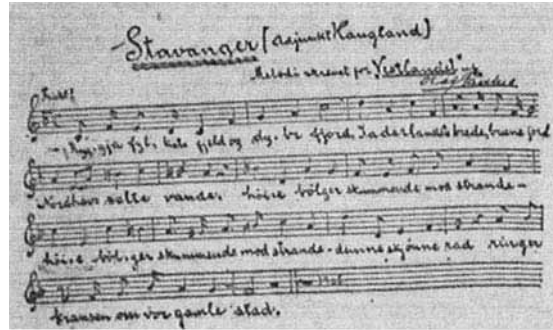 Stavanger (Adjunkt Haugland)
Melodi skrevet for "Vestlandet"
fyl, kate fjeld og dy-be fjord, Jæderlandets brede, brune jord
Nordhavs salte vande. høie bølger skummende mod strande-
høi-e böl-ger skummende mod strande- denne skjønne rad ringer
kransen om vor gamle stad.